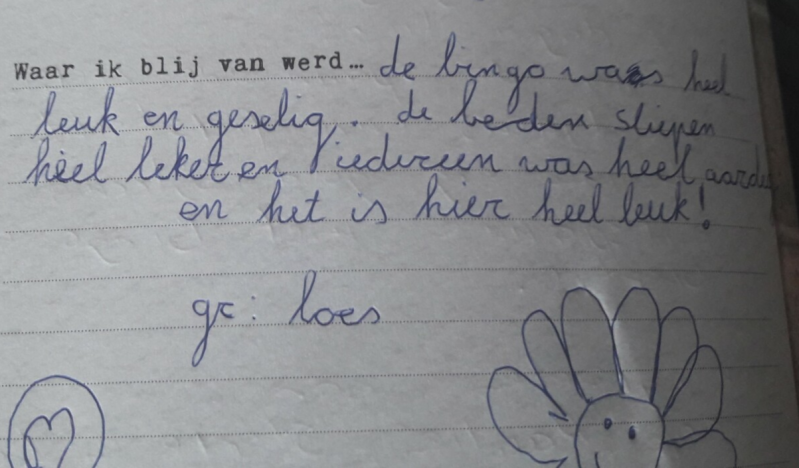 Waar ik blij van werd... de bingo was heel
leuk en geselig. de beden sliepen
heel leket en iedereen was heel aardig
en het is hier heel leuk!
gr: loes